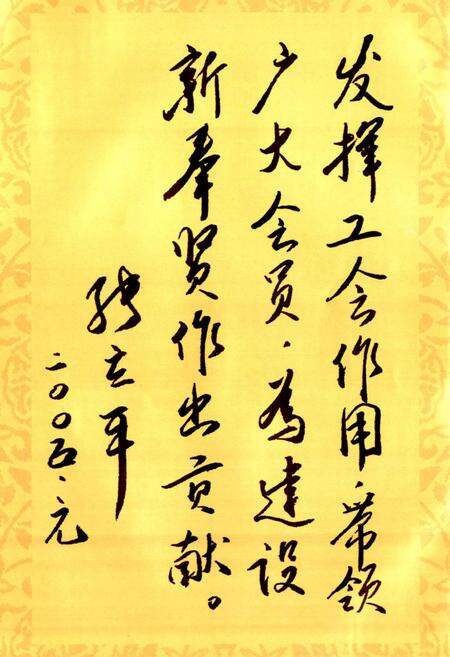 发挥工会作用,带领
广大会员,為建设
新奉贤作出贡献。
张立平
二〇〇五、元